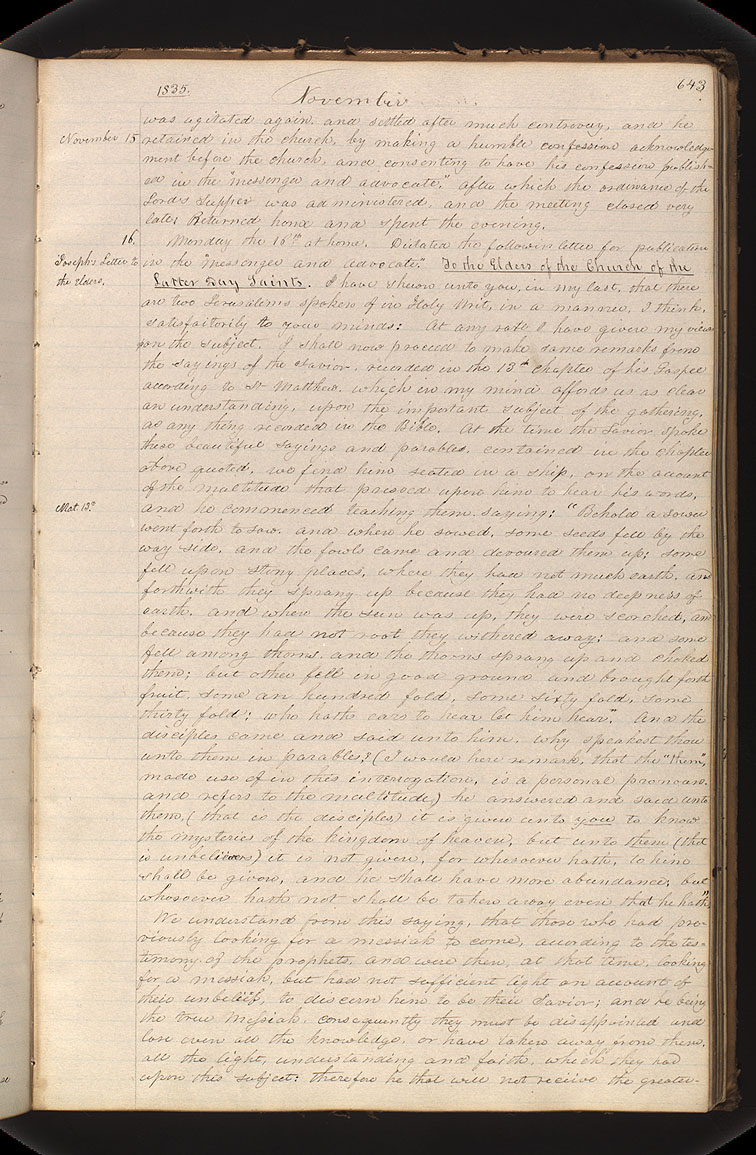 1835.
November
643
was agitated again, and settled after much controversy, and he
November 15 retained in the church, by making a humble confession acknowledge-
ment before the church, and consenting to have his confession publish-
ed in the "messenger and advocate." after which the ordinance of the
Lord's Supper was administered, and the meeting closed very
late; Returned home and spent the evening.
16. Monday the 16th at home. Dictated the following letter for publication
Joseph's Letter to in the "messenger and advocate." To the Elders of the Church of the
the Elders, Latter Day Saints. I have shewn unto you, in my last, that there
are two Jerusalems spoken of in Holy Writ, in a manner, I think,
satisfactorily to your minds: At any rate I have given my views
upon the subject. I shall now proceed to make some remarks from
the sayings of the Savior, recorded in the 13th chapter of his Gospel
according to St Matthew, which in my mind affords us as clear
an understanding, upon the important subject of the gathering,
as any thing recorded in the Bible. At the time the Savior spoke
these beautiful sayings and parables, contained in the chapter
above quoted, we find him seated in a ship, on the account
of the multitude that pressed upon him to hear his words,
Mat. 13. and he commenced teaching them saying: "Behold a sower
went forth to sow, and when he sowed, some seeds fell by the
way side, and the fowls came and devoured them up; some
fell upon stony places, where they had not much earth, and
forthwith they sprang up because they had no deepness of
earth, and when the sun was up, they were scorched, and
because they had not root they withered away; and some
fell among thorns and the thorns sprang up and choked
them; but other fell in good ground and brought forth
fruit, some an hundred fold, some sixty fold, some
thirty fold: who hath ears to hear let him hear." And the
disciples came and said unto him, why speakest thou
unto them in parables? (I would here remark, that the "them",
made use of in this interrogation, is a personal pronoun,
and refers to the multitude,) he answered and said unto
them, (that is the disciples) it is given unto you to know
the mysteries of the kingdom of heaven, but unto them (that
is unbelievers) it is not given, for whosoever hath, to him
shall be given, and he shall have more abundance; but
whosoever hath not shall be taken away even that he hath"
We understand from this saying, that those who had pre-
viously looking for a messiah to come, according to the tes-
timony of the prophets, and were then, at that time, looking
for a messiah, but had not sufficient light on account of
their unbelief, to discern him to be their Savior; and he being
the true Messiah, consequently they must be disappointed and
lose even all the knowledge, or have taken away from them,
all the light, understanding and faith, which they had
upon this subject: therefore he that will not receive the greater